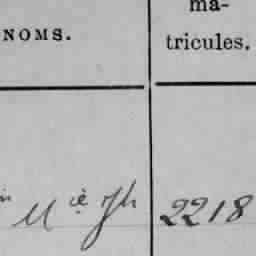 NOMS.
ma-
tricules.
M ie Jh 2218